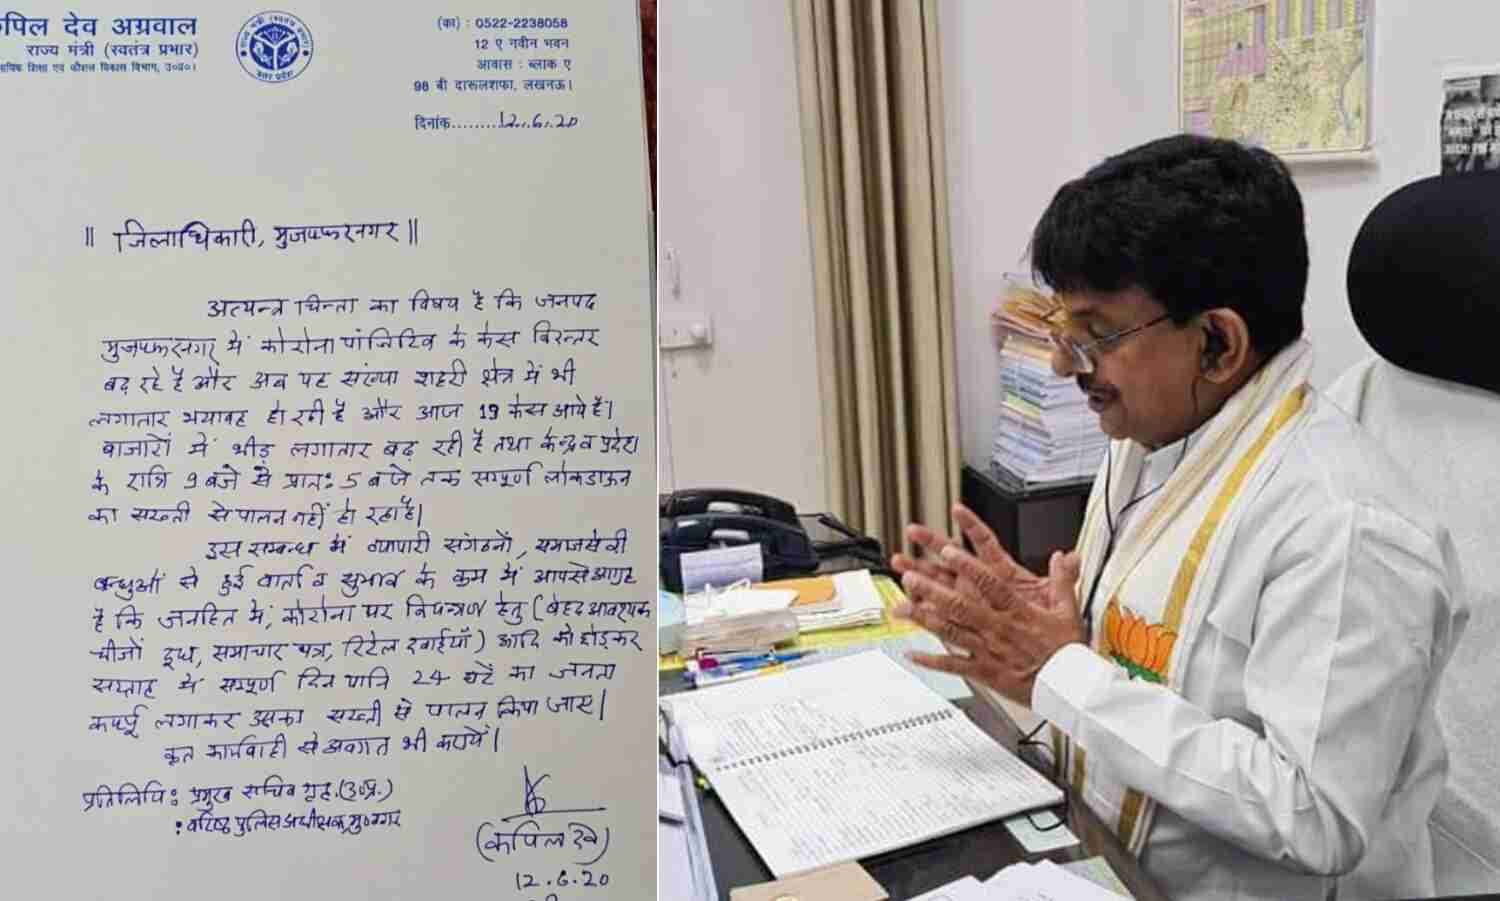 कपिल देव अग्रवाल
राज्य मंत्री (स्वतंत्र प्रभार)
शिक्षा एवं कौशल विकास विभाग, उ०प्र०।
उत्तर प्रदेश
(का) : 0522-2238058
12 ए नवीन भवन
आवास : ब्लाक ए
98 बी दारूलशफा, लखनऊ।
दिनांक........12.6.20
|| जिलाधिकारी, मुजफ्फरनगर ||
अत्यन्त चिन्ता का विषय है कि जनपद
मुजफ्फरनगर में कोरोना पॉजिटिव के केस निरन्तर
बढ़ रहे है और अब यह संख्या शहरी क्षेत्र में भी
लगातार भयावह हो रही है और आज 19 केस आये है।
बाजारों में भीड़ लगातार बढ़ रही है तथा केन्द्र व प्रदेश
के रात्रि 9 बजे से प्रात: 5 बजे तक सम्पूर्ण लोकडाऊन
का सख्ती से पालन नहीं हो रहा है।
इस सम्बन्ध में व्यापारी संगठनों, समाजसेवी
बन्धुओं से हुई वार्ता व सुझाव के क्रम में आपसे आग्रह
है कि जनहित में, कोरोना पर नियन्त्रण हेतु (बेहद आवश्यक
चीजों दूध, समाचार पत्र, रिटेल दवाईयाँ) आदि को छोड़कर
सप्ताह में सम्पूर्ण दिन यानि 24 घंटे का जनता
कर्फ्यू लगाकर उसका सख्ती से पालन किया जाए।
कृत कार्यवाही से अवगत भी करायें।
प्रतिलिपि : प्रमुख सचिव गृह (उ०प्र०)
: वरिष्ठ पुलिस अधीक्षक मु०नगर
(कपिल देव)
12.6.20